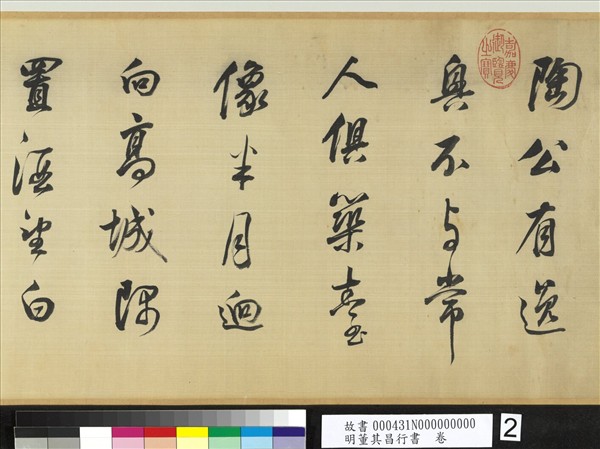 陶公有逸
興不与常
人俱築臺
像半月逈
向高城隅
置酒望白
嘉慶御覽之寶
故書 000431N000000000
明董其昌行書 卷
2